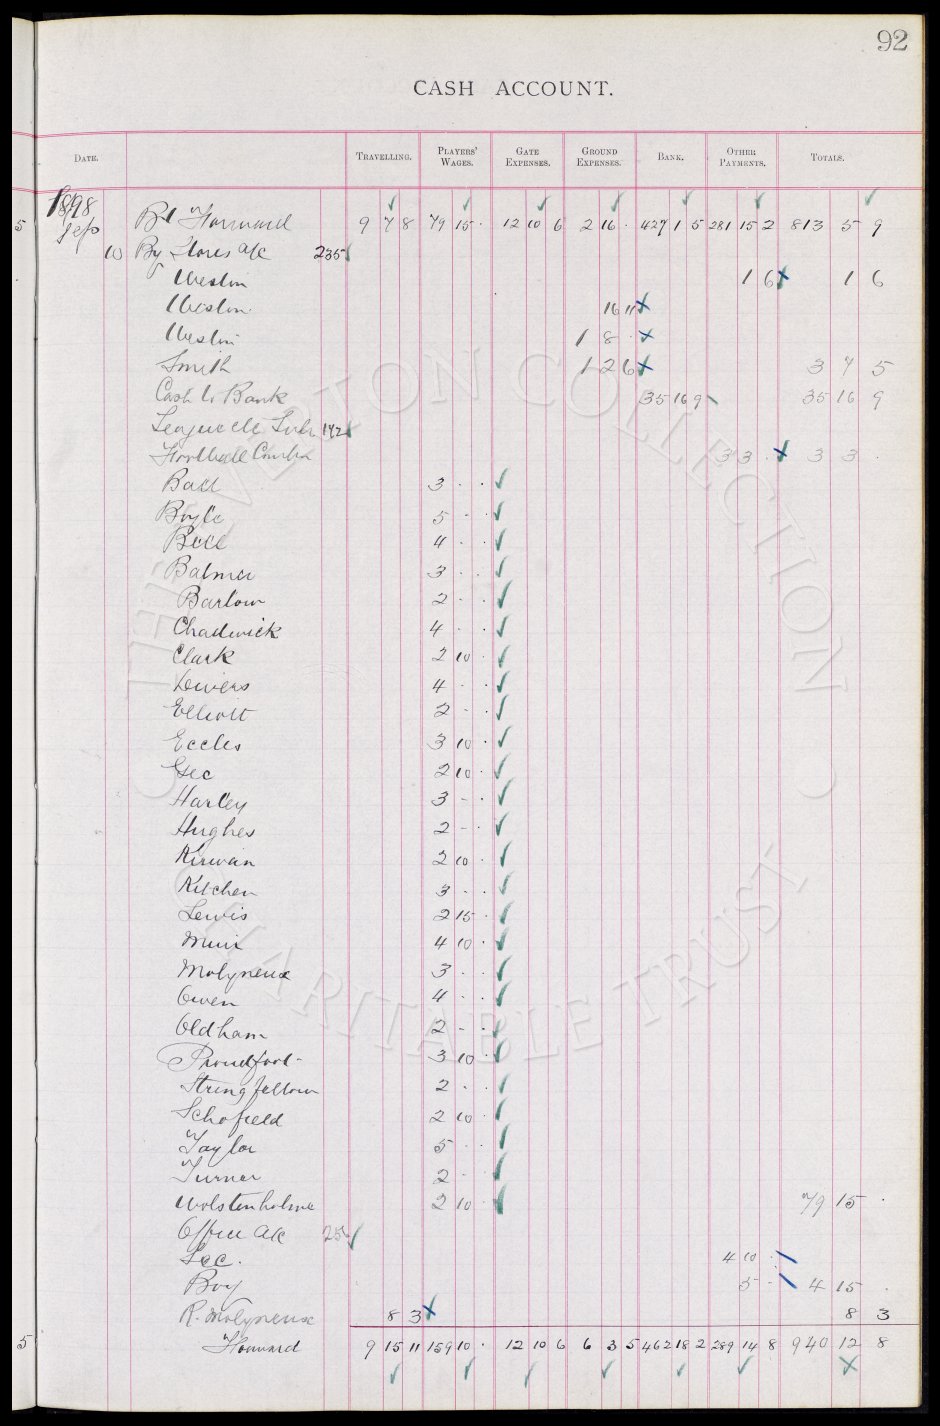 92
CASH ACCOUNT.
DATE. TRAVELLING. PLAYERS' WAGES. GATE EXPENSES. GROUND EXPENSES. BANK. OTHER PAYMENTS. TOTALS.
1898
5 Sep Bt Forward 9 7 8 79 15 · 12 10 6 2 16 · 427 1 5 281 15 2 813 5 9
10 By Stores a/c 235
Weston 1 6 1 6
Weston 16 11
Weston 1 8 ·
Smith 1 2 6 3 7 5
Cash to Bank 35 16 9 35 16 9
League &c Sub 142
Football Comb 3 3 · 3 3 ·
Ball 3 · ·
Boyle 5 - ·
Bell 4 · ·
Balmer 3 · ·
Barlow 2 · ·
Chadwick 4 · ·
Clark 2 10 ·
Divers 4 · ·
Elliott 2 - ·
Eccles 3 10 ·
Gee 2 10 ·
Harley 3 - ·
Hughes 2 - ·
Kirwan 2 10 ·
Kitchen 3 · ·
Lewis 2 15 ·
Muir 4 10 ·
Molyneux 3 · ·
Owen 4 · ·
Oldham 2 - ·
Proudfoot 3 10 ·
Stringfellow 2 · ·
Schofield 2 10 ·
Taylor 5 · ·
Turner 2 - ·
Wolstenholme 2 10 · 79 15 ·
Office a/c 25
Sec. 4 10 ·
Boy 5 - 4 15 ·
R. Molyneux 8 3 8 3
5 Forward 9 15 11 159 10 · 12 10 6 6 3 5 462 18 2 289 14 8 940 12 8
THE EVERTON COLLECTION
CHARITABLE TRUST